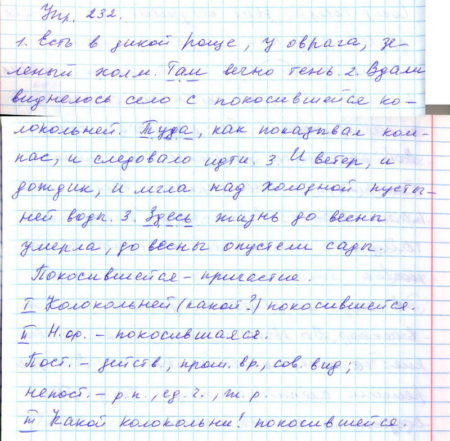 Упр. 232.
1. Есть в дикой роще, у оврага, зе-
леный холм. Там вечно тень. 2. Вдали
виднелось село с покосившейся ко-
локольней. Туда, как показывал ком-
пас, и следовало идти. 3. И ветер, и
дождик, и мгла над холодной пусты-
ней воды. 3. Здесь жизнь до весны
умерла, до весны опустели сады.
Покосившейся – причастие.
I Колокольней (какой?) покосившейся.
II Н.ф. – покосившаяся.
Пост. – действ, прош. вр., сов. вид;
непост. – р.п., ед.ч., ж.р.
III Какой колокольни? покосившейся.